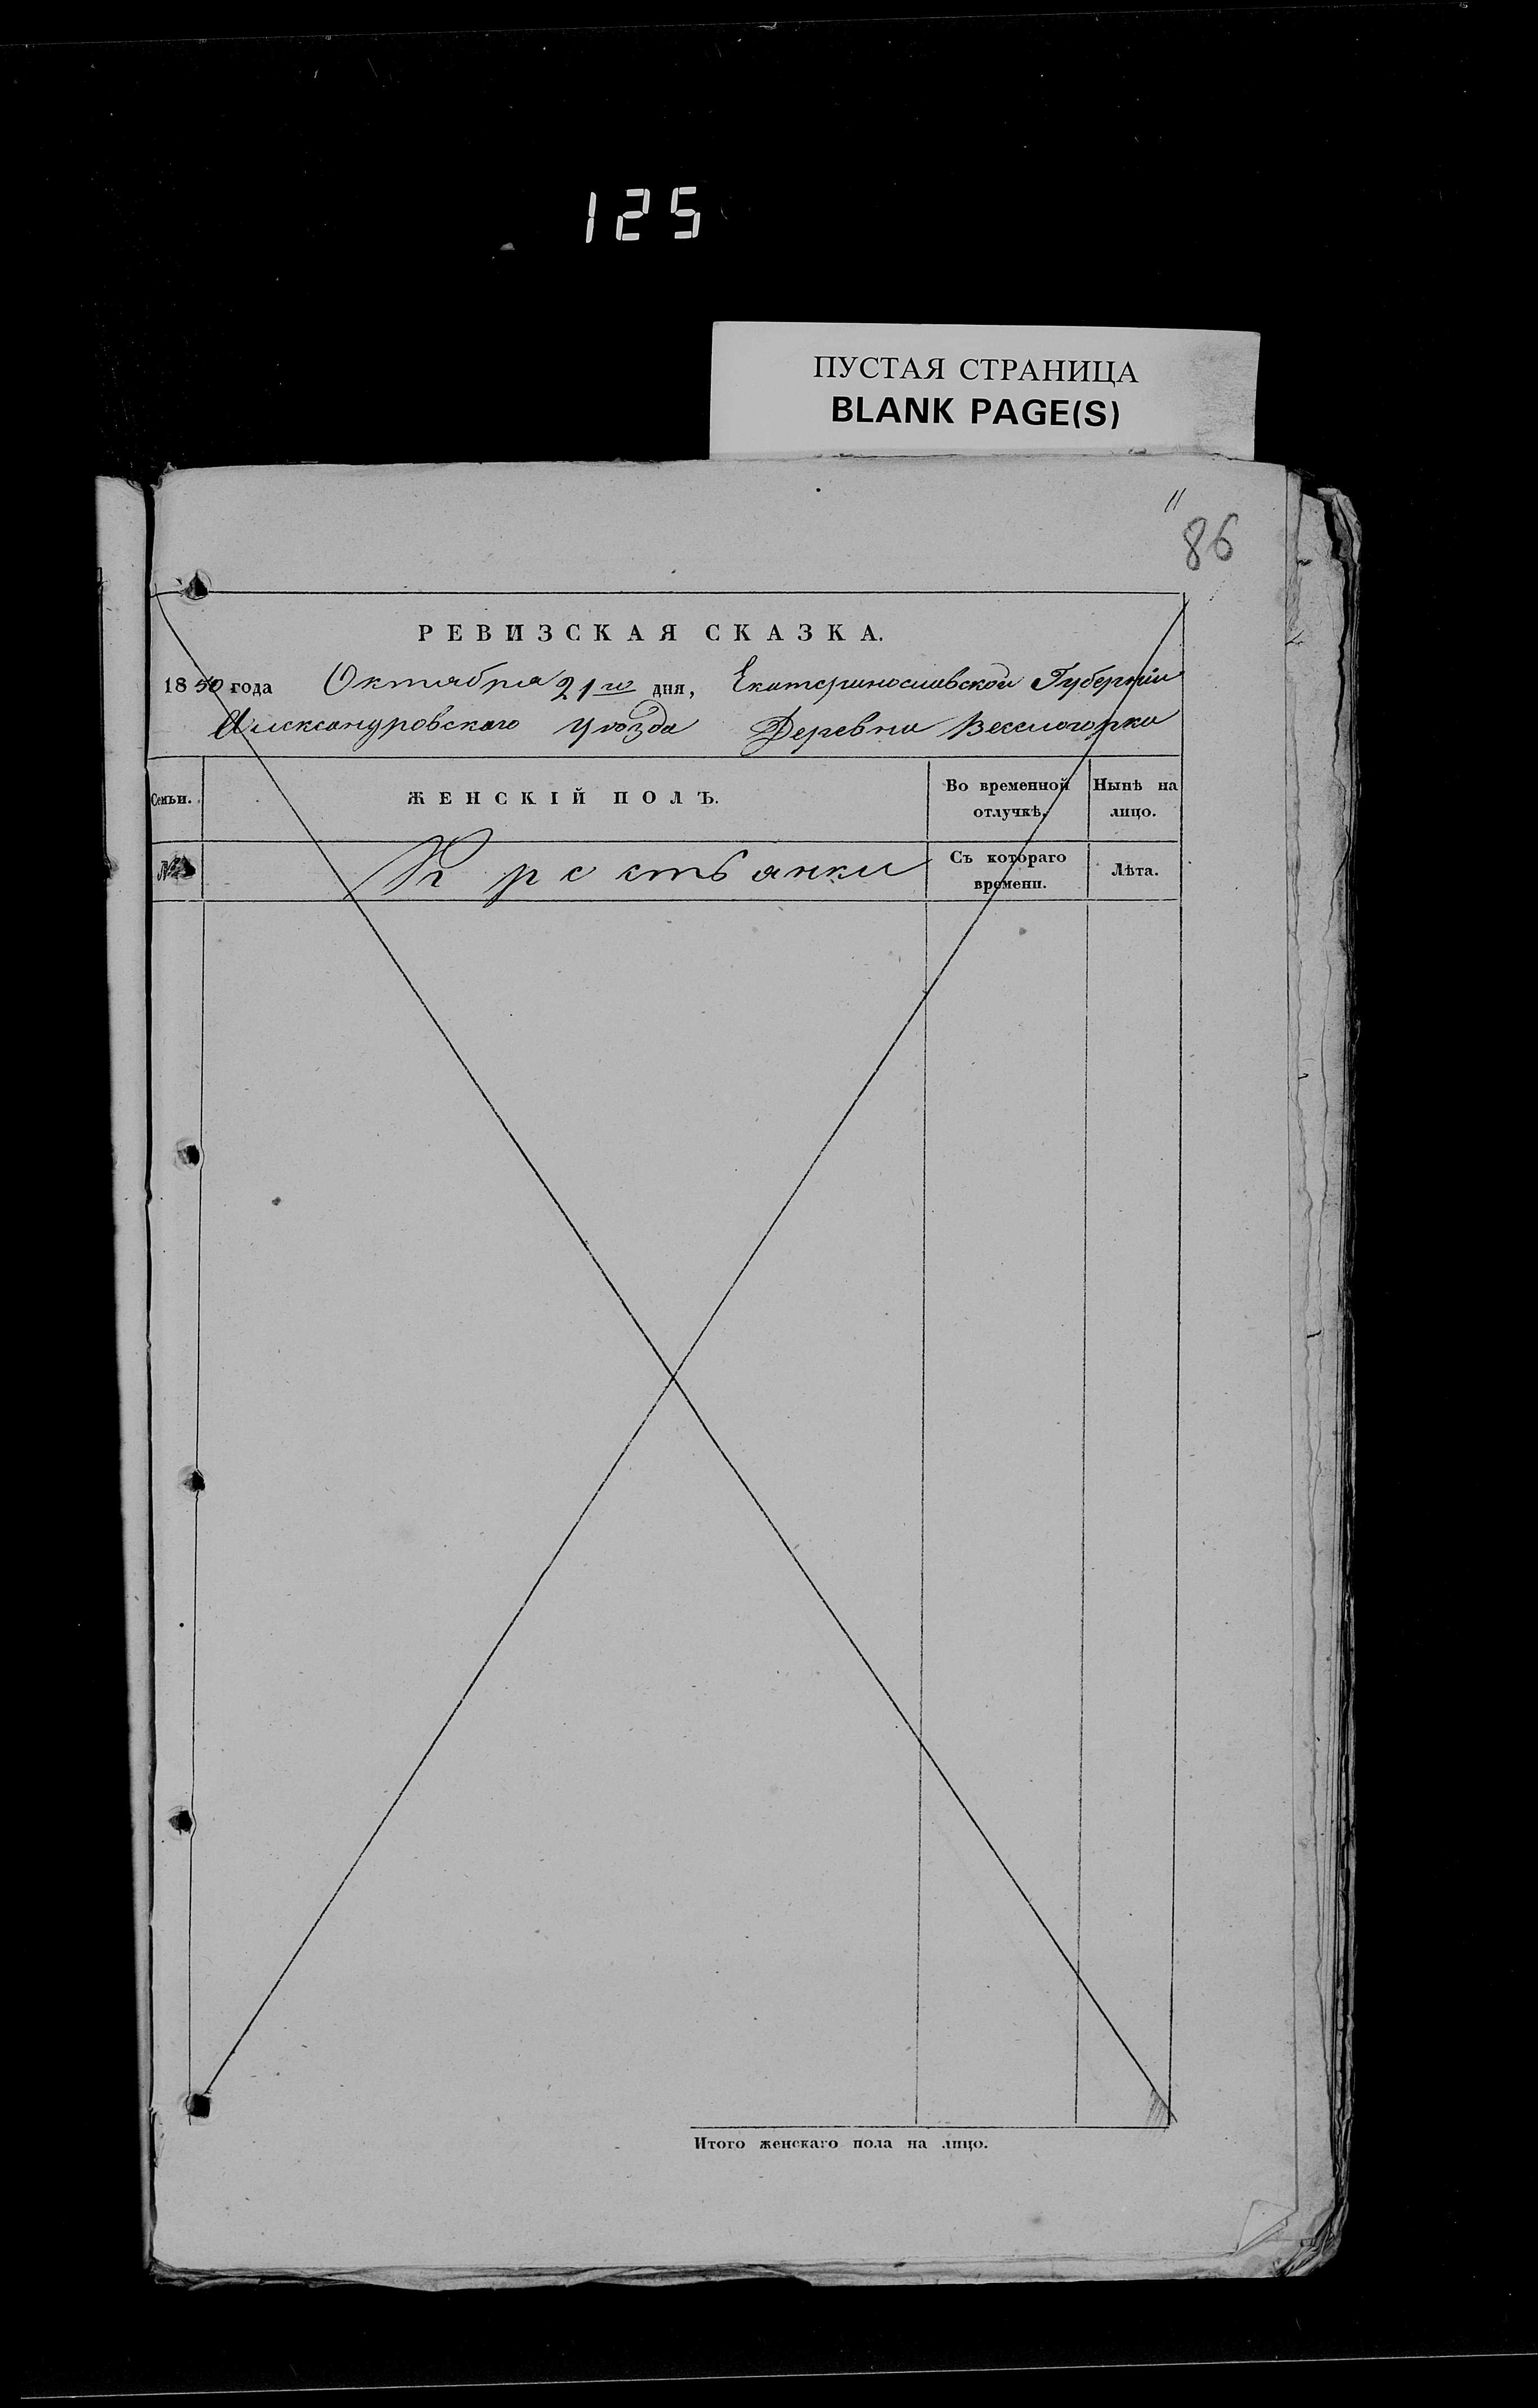 125
ПУСТАЯ СТРАНИЦА
BLANK PAGE(S)
11
86
РЕВИЗСКАЯ СКАЗКА.
1850 года Октября 21го дня, Екатеринославской Губерніи
Александровскаго Уѣзда Деревни Веселогорки
Семьи. ЖЕНСКІЙ ПОЛЪ. Во временной отлучкѣ. Нынѣ на лицо.
№ Крестьянки Съ котораго времени. Лѣта.
Итого женскаго пола на лицо.